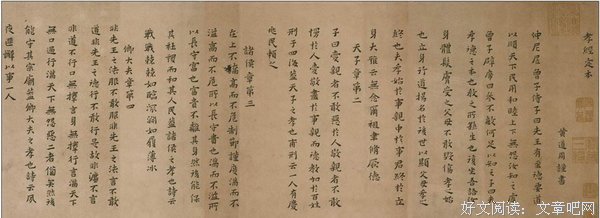 孝經定本
黃道周謹書
仲尼居曾子侍子曰先王有至德要道
以順天下民用和睦上下無怨汝知之乎
曾子辟席曰參不敏何足以知之子曰夫
孝德之本也教之所由生也復坐吾語汝
身體髮膚受之父母不敢毀傷孝之始
也立身行道揚名於後世以顯父母孝之
終也夫孝始於事親中於事君終於立
身大雅云無念爾祖聿脩厥德
天子章第二
子曰愛親者不敢惡於人敬親者不敢
慢於人愛敬盡於事親而德教加於百姓
刑于四海蓋天子之孝也甫刑云一人有慶
兆民賴之
諸侯章第三
在上不驕高而不危制節謹度滿而不
溢高而不危所以長守貴也滿而不溢所
以長守富也富貴不離其身然後能保
其社稷而和其人民蓋諸侯之孝也詩云
戰戰兢兢如臨深淵如履薄冰
卿大夫章第四
非先王之法服不敢服非先王之法言不敢
道非先王之德行不敢行是故非法不言
非道不行口無擇言身無擇行言滿天下
無口過行滿天下無怨惡三者備矣然後
能守其宗廟蓋卿大夫之孝也詩云夙
夜匪懈以事一人
好文阅读:文章吧网